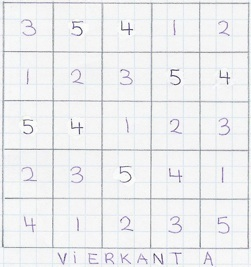 3 5 4 1 2
1 2 3 5 4
5 4 1 2 3
2 3 5 4 1
4 1 2 3 5
ViERKANT A